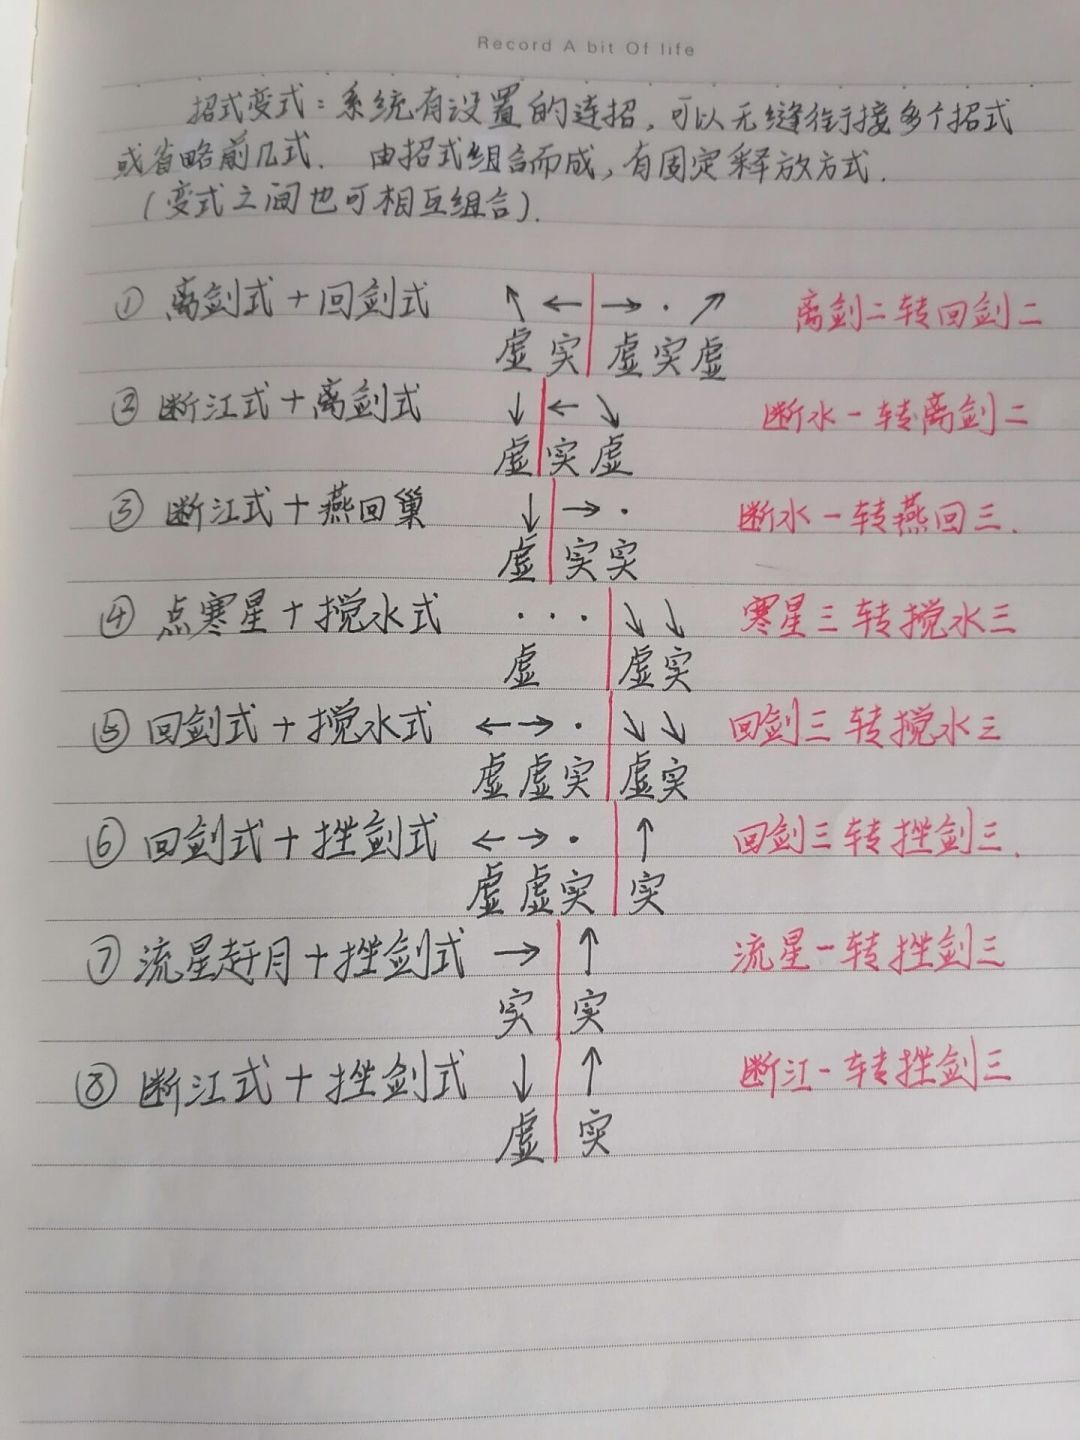 Record A bit Of life
招式变式：系统有设置的连招，可以无缝衔接多个招式
或省略前几式．由招式组合而成，有固定释放方式．
（变式之间也可相互组合）．
① 离剑式＋回剑式 ↖ ← | → · ↗ 离剑二转回剑二
虚 实 | 虚 实 虚
② 断江式＋离剑式 ↓ | ← ↘ 断水一转离剑二
虚 | 实 虚
③ 断江式＋燕回巢 ↓ | → · 断水一转燕回三．
虚 | 实 实
④ 点寒星＋搅水式 · · · | ↘ ↘ 寒星三转搅水三
虚 | 虚 实
⑤ 回剑式＋搅水式 ← → · | ↘ ↘ 回剑三转搅水三
虚 虚 实 | 虚 实
⑥ 回剑式＋挫剑式 ← → · | ↑ 回剑三转挫剑三．
虚 虚 实 | 实
⑦ 流星赶月＋挫剑式 → | ↑ 流星一转挫剑三
实 | 实
⑧ 断江式＋挫剑式 ↓ | ↑ 断江一转挫剑三
虚 | 实